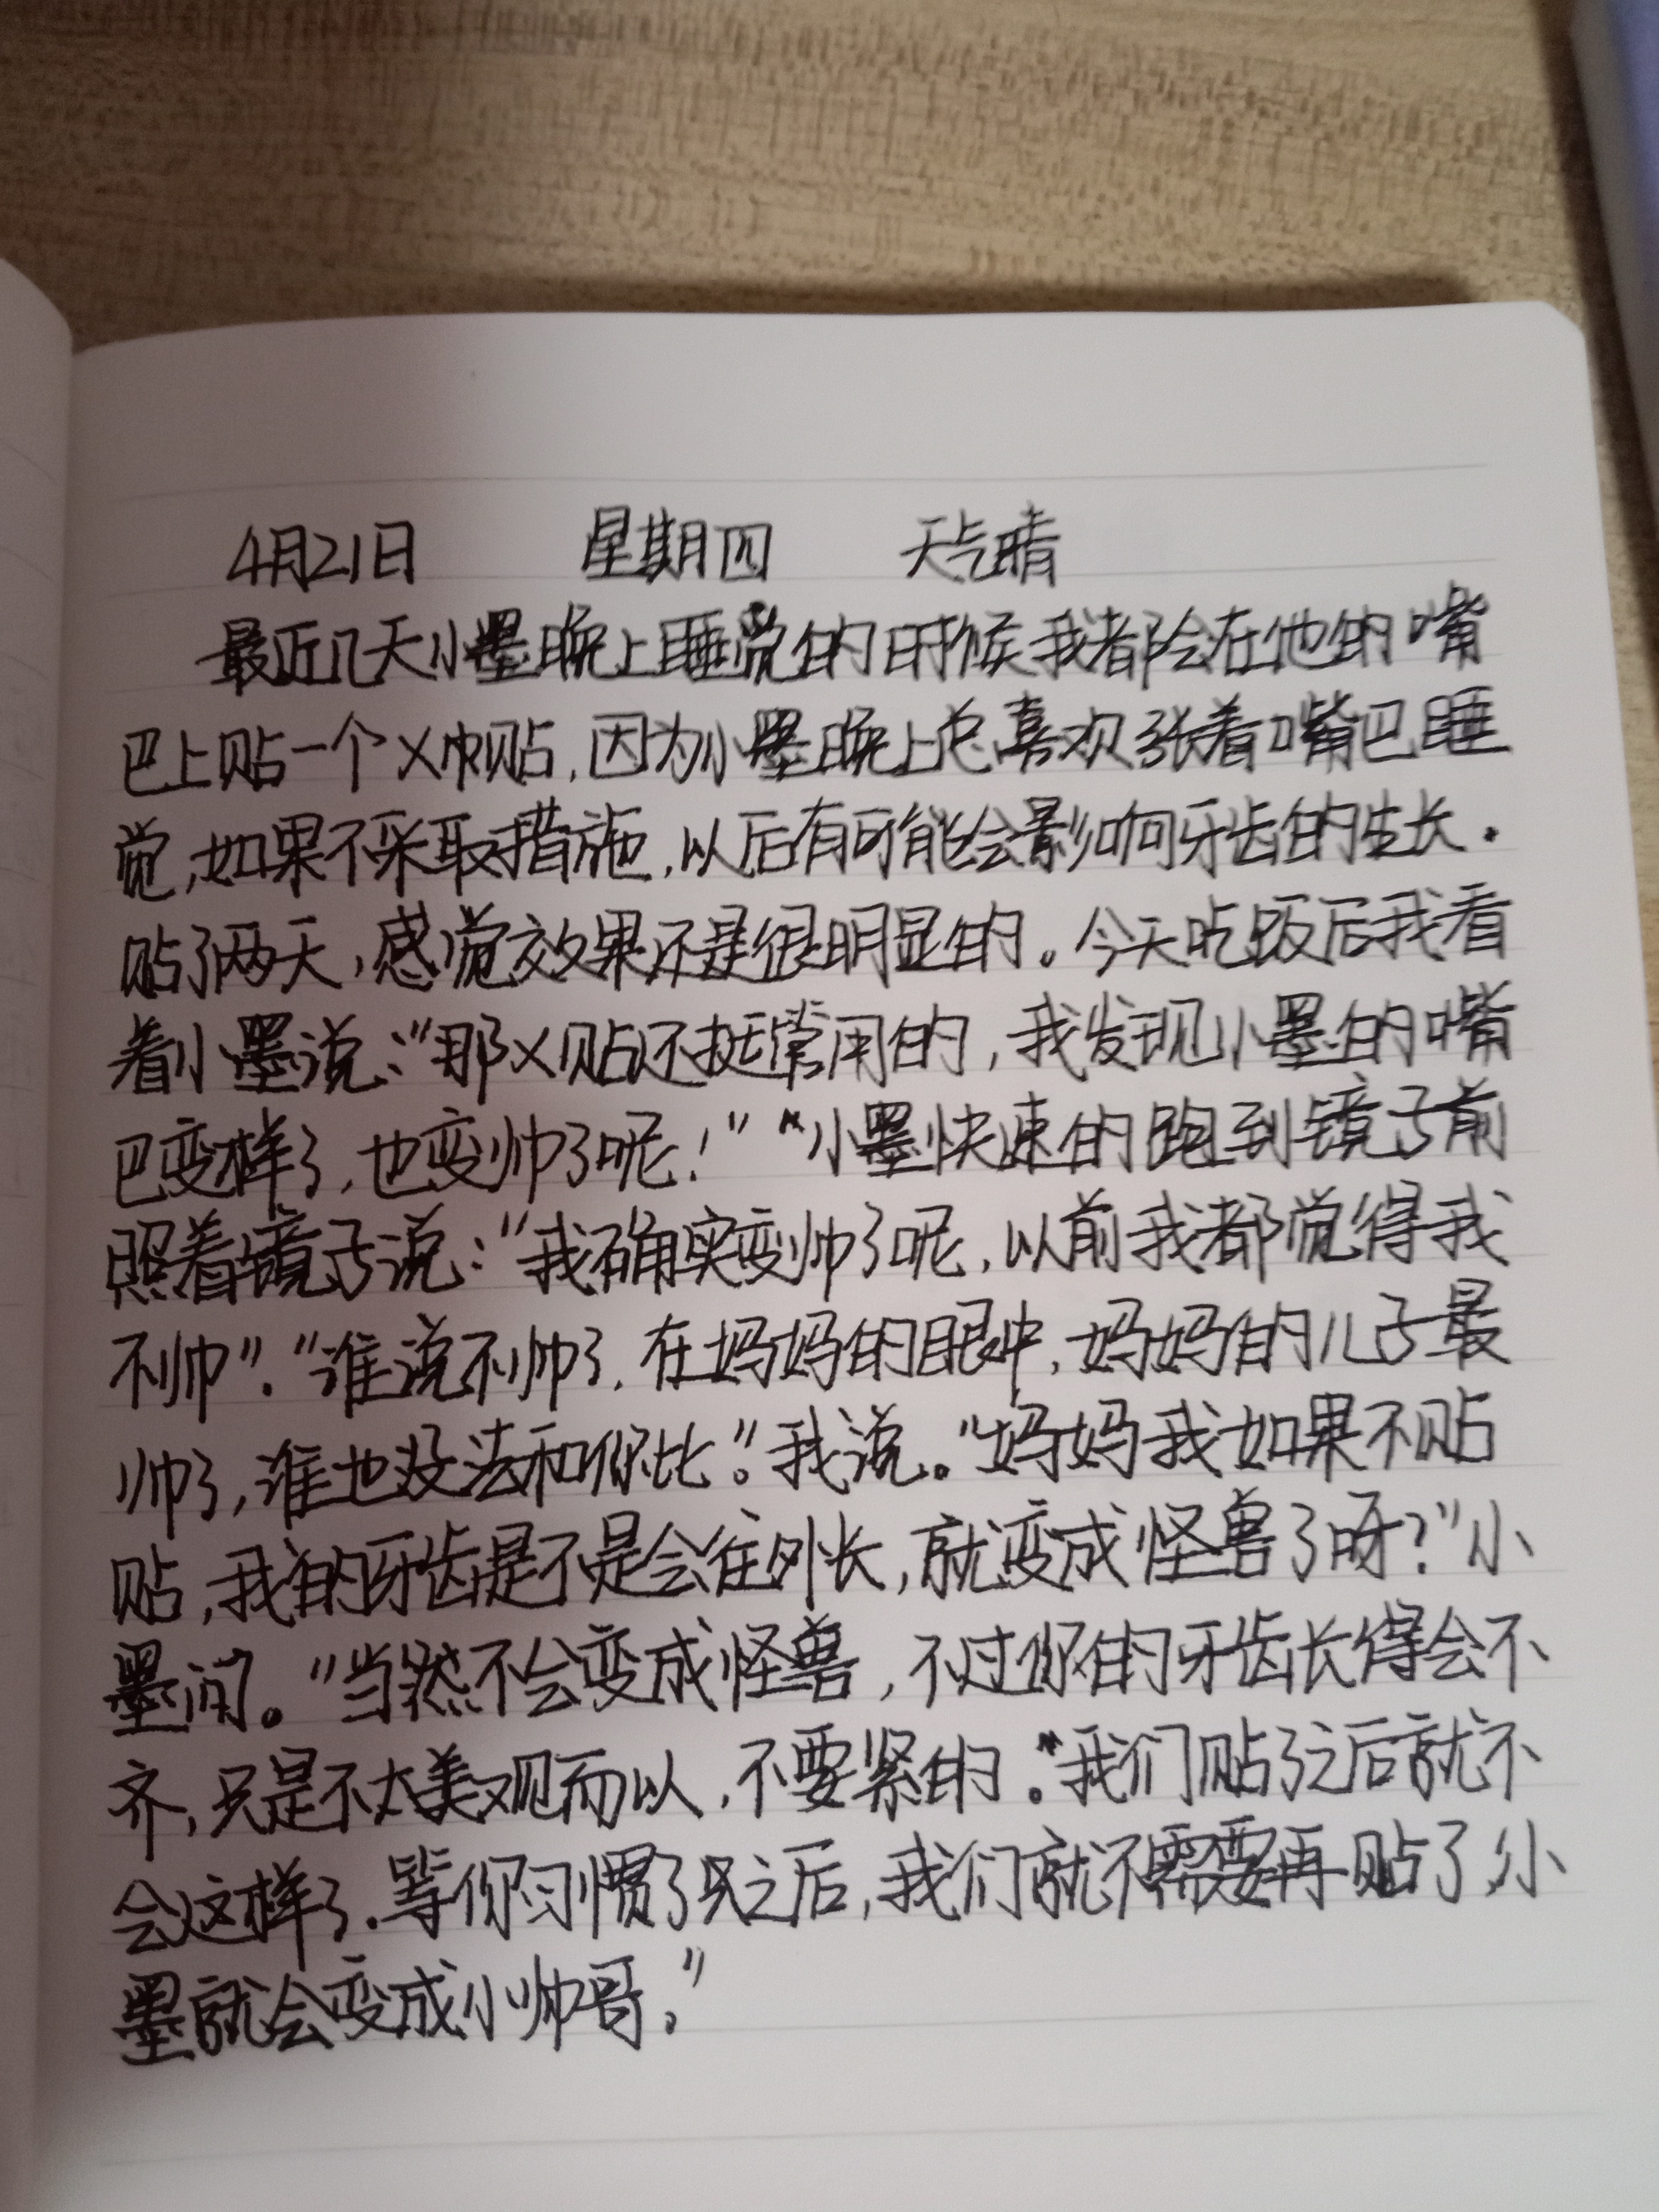 4月21日 星期四 天气晴
最近几天小墨晚上睡觉的时候我都会在他的嘴
巴上贴一个X巾贴,因为小墨晚上总喜欢张着嘴巴睡
觉,如果不采取措施,以后有可能会影响牙齿的生长.
贴了两天,感觉效果还是很明显的。今天吃饭后我看
着小墨说:“那X贴还挺管用的,我发现小墨的嘴
巴变样了,也变帅了呢!”“小墨快速的跑到镜子前
照着镜子说:“我确实变帅了呢,以前我都觉得我
不帅”.“谁说不帅了,在妈妈的眼中,妈妈的儿子最
帅了,谁也没法和你比”.我说。“妈妈我如果不贴
贴,我的牙齿是不是会往外长,就变成怪兽了呀?”小
墨问。“当然不会变成怪兽,不过你的牙齿长得会不
齐,只是不太美观而以,不要紧的.“我们贴了之后就不
会这样了.等你习惯了之后,我们就不需要再贴了,小
墨就会变成小帅哥.”